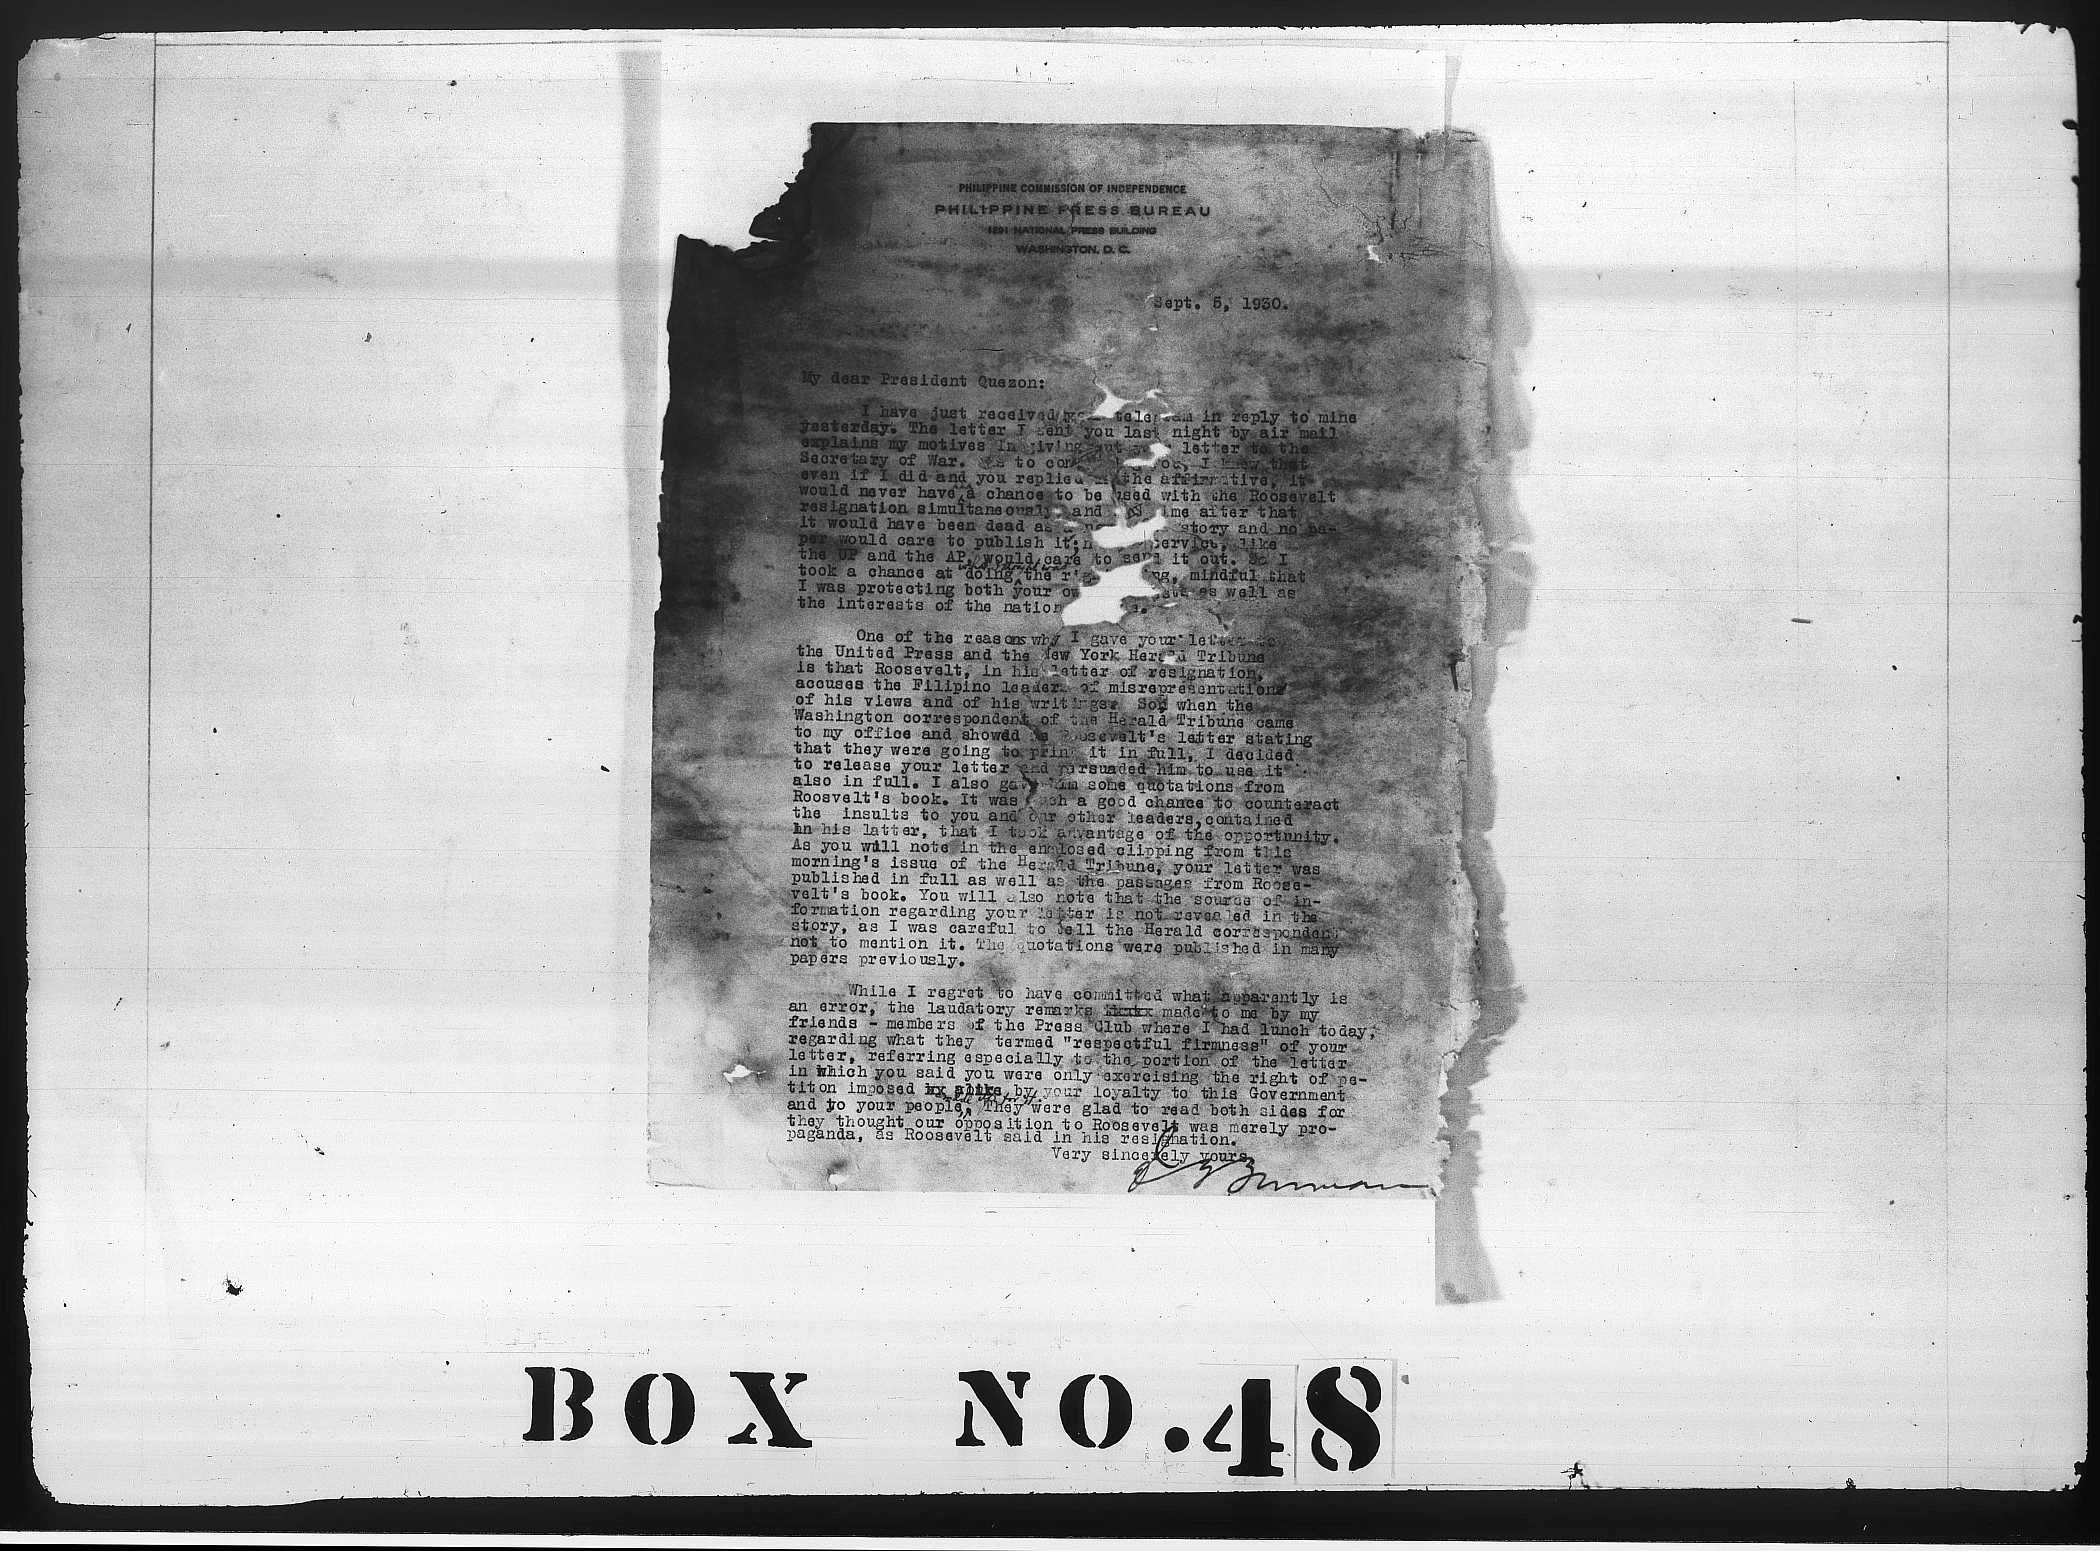 PHILIPPINE COMMISSION OF INDEPENDENCE
PHILIPPINE PRESS BUREAU
NATIONAL PRESS BUILDING
WASHINGTON, D. C.
Sept. 5, 1930.
My dear President Quezon:
I have just received telegram in reply to mine
yesterday. The letter I sent you last night by air mail
explains my motives in giving out letter to the
Secretary of War. As to I knew that
even if I did and you replied the affirmative, it
would never have a chance to be used with the Roosevelt
resignation simultaneously and after that
it would have been dead as story and no pa-
per would care to publish it; service, like
the UP and the AP, would care to send it out. So I
took a chance at doing the mindful that
I was protecting both your as well as
the interests of the
One of the reasons why I gave your letter to
the United Press and the New York Herald Tribune
is that Roosevelt, in his letter of resignation,
accuses the Filipino leaders of misrepresentations
of his views and of his writings. So, when the
Washington correspondent of the Herald Tribune came
to my office and showed me Roosevelt's letter stating
that they were going to print it in full, I decided
to release your letter and persuaded him to use it
also in full. I also gave him some quotations from
Roosvelt's book. It was such a good chance to counteract
the insults to you and our other leaders, contained
in his latter, that I took advantage of the opportunity.
As you will note in the enclosed clipping from this
morning's issue of the Herald Tribune, your letter was
published in full as well as the passages from Roose-
velt's book. You will also note that the source of in-
formation regarding your letter is not revealed in the
story, as I was careful to tell the Herald correspondent
not to mention it. The quotations were published in many
papers previously.
While I regret to have committed what apparently is
an error, the laudatory remarks made to me by my
friends - members of the Press Club where I had lunch today,
regarding what they termed "respectful firmness" of your
letter, referring especially to the portion of the letter
in which you said you were only exercising the right of pe-
titon imposed by your loyalty to this Government
and to your people, They were glad to read both sides for
they thought our opposition to Roosevelt was merely pro-
paganda, as Roosevelt said in his resignation.
Very sincerely yours
BOX NO. 48